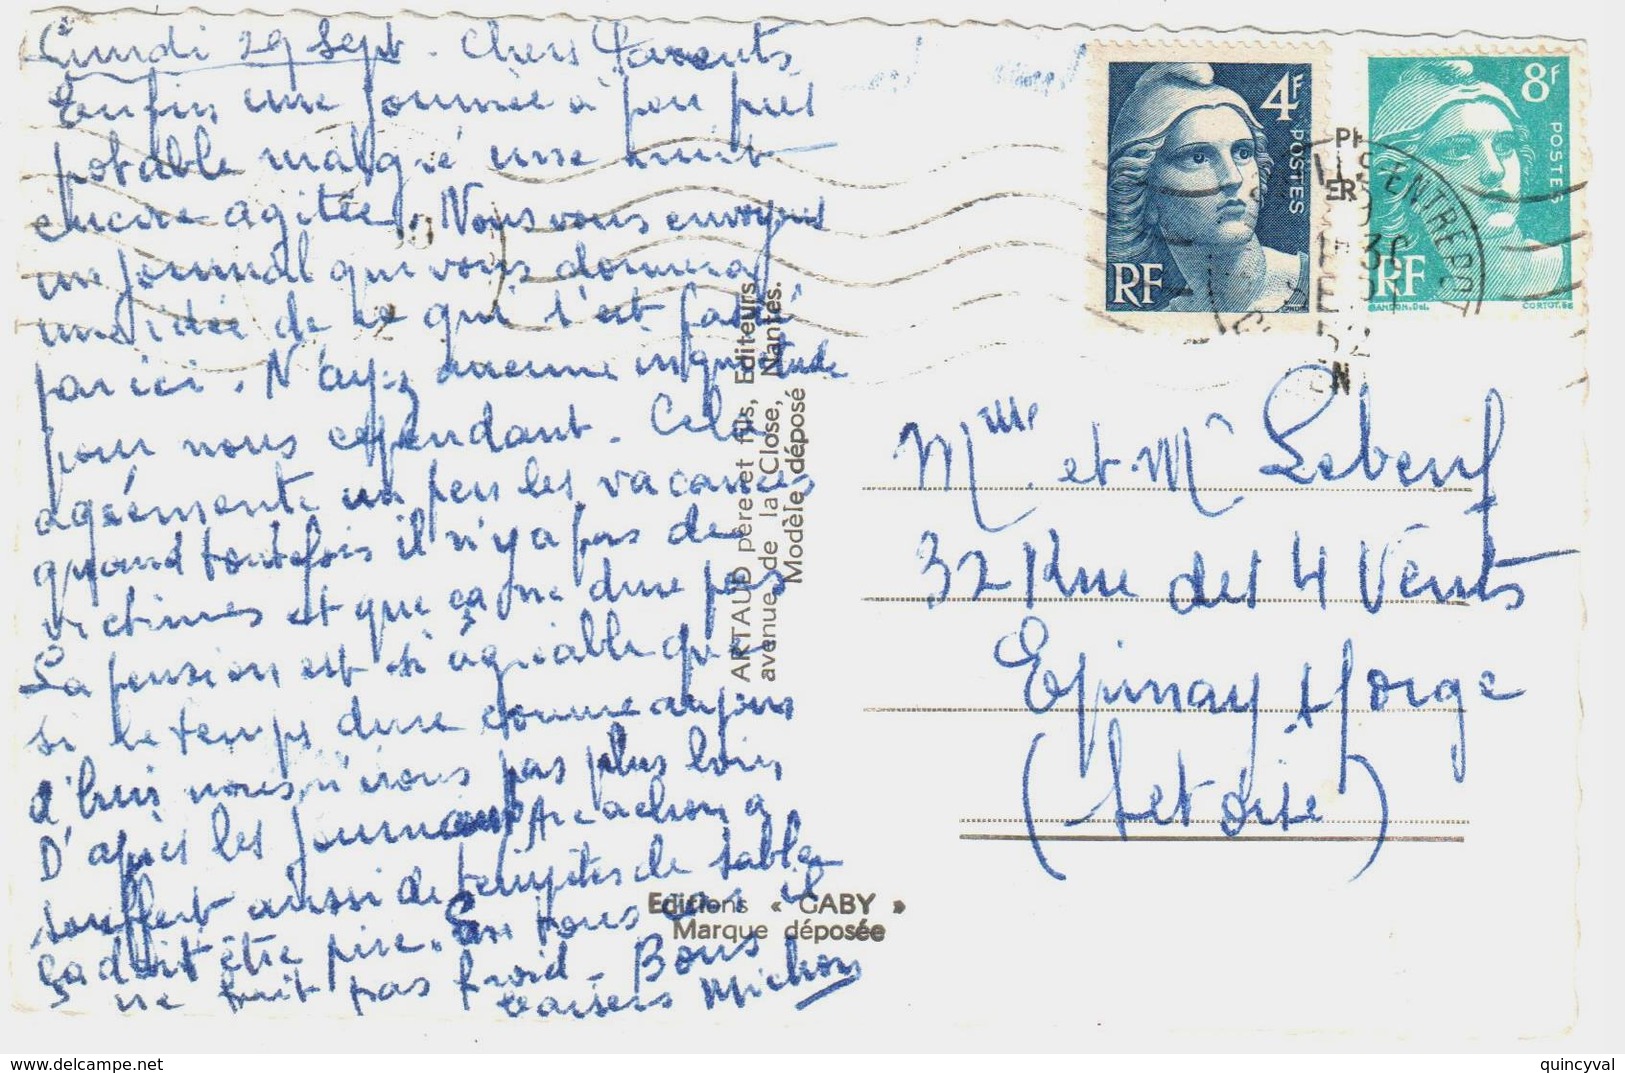 Lundi 29 Sept. Chers Parents
Enfin une journée à peu près
potable malgré une nuit
encore agitée. Nous vous envoyons
un journal qui vous donnera
une idée de ce qui s'est passé
par ici. N'ayez aucune inquiétude
pour nous cependant. Cela
agrémente un peu les vacances
quand toutefois il n'y a pas de
victimes et que ça ne dure pas
La pension est si agréable que
si le temps dure comme aujour
d'hui nous n'irons pas plus loin
D'après les journaux Arcachon a
souffert aussi de tempêtes de sable
ça doit être pire. En tous cas il
ne fait pas froid - Bons
baisers Michou
ARTAUD père et fils, Editeurs
avenue de la Close, Nantes.
Modèle déposé
Editions « GABY »
Marque déposée
4F
POSTES
RF
8F
POSTES
RF
GANDON.DEL.
CORTOT.SC
ENTREPOT
52
Mme et Mr Lebeuf
32 Rue des 4 Vents
Epinay s/ Orge
(Set Oise)
www.delcampe.net
quincyval